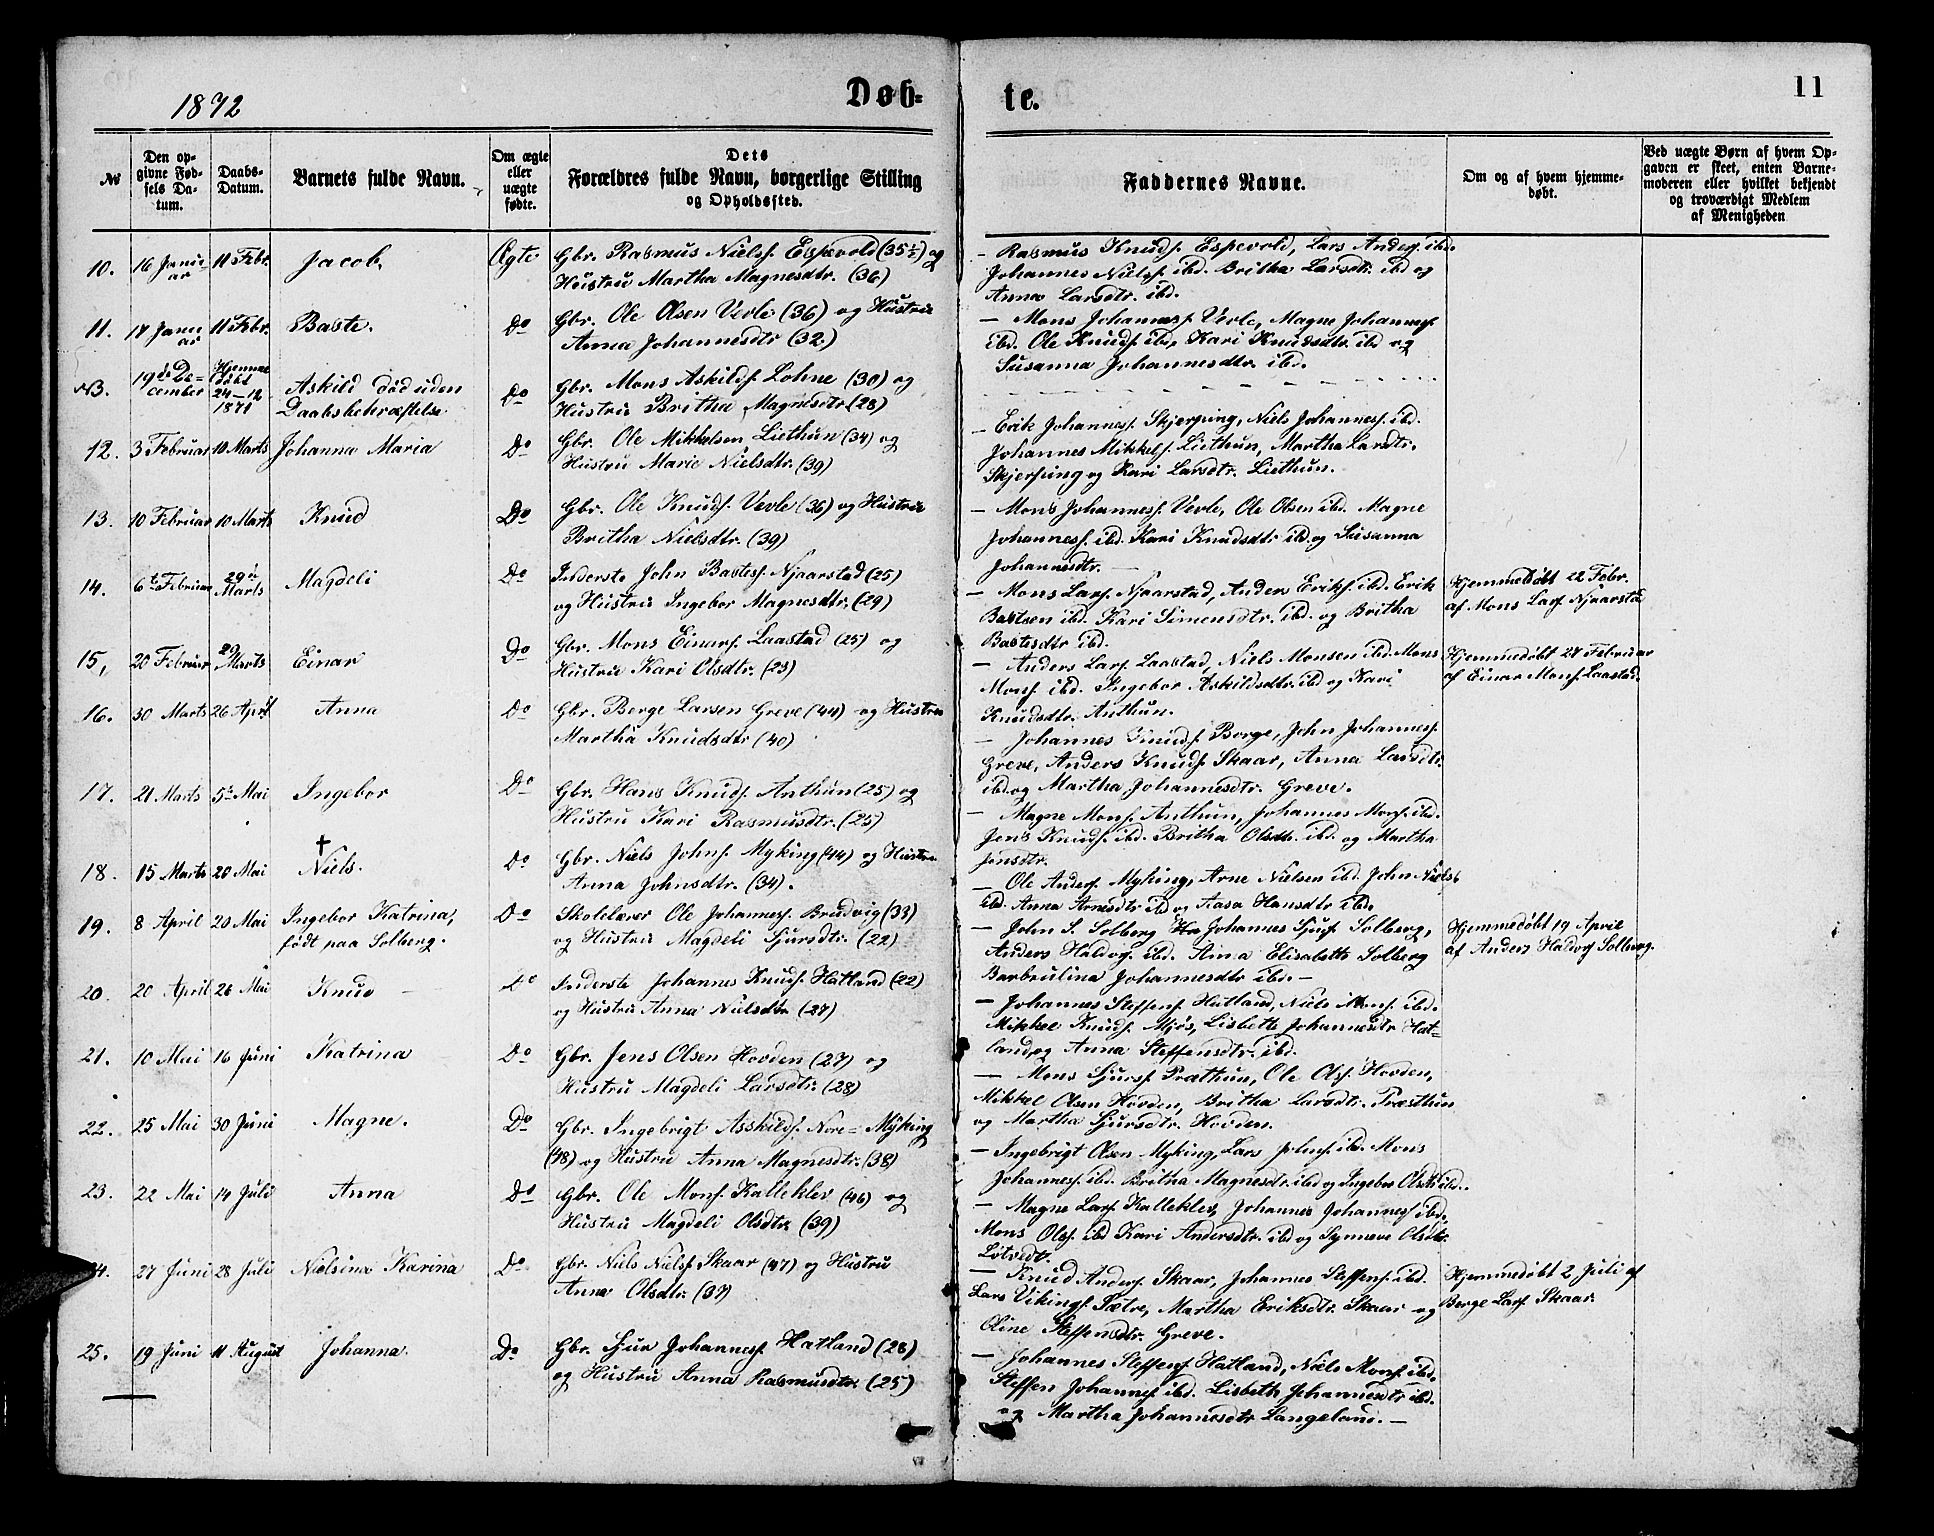 1872
Døb-
№
Den op-
givne Fød-
sels Da-
tum.
Daabs-
Datum.
Barnets fulde Navn.
Om ægte
eller
uægte
fødte.
Dets
Forældres fulde Navn, borgerlige Stilling
og Opholdssted.
10. 16 Janu- 11 Febr. Jacob, Ægte Gbr. Rasmus Nielss. Espevold (35½) og
ar Hustru Martha Magnesdtr. (36)
11. 17 Janu 11 Febr. Baste. Do Gbr. Ole Olsen Vevle (36) og Hustru
ar Anna Johannesdtr (32)
NB. 19de De- Hjemme Askild død uden Do Gbr. Mons Askilds. Lohne (30) og
cember døbt 24-12 1871 Daabsbekræftelse Hustru Britha Magnesdtr. (28)
12. 3 Februar 10 Marts Johanna Maria Do Gbr. Ole Mikkelsen Liethun (34) og
Hustru Marie Nielsdtr. (39)
13. 10 Februar 10 Marts Knud Do Gbr. Ole Knuds. Vevle (36) og Hustru
Britha Nielsdtr. (39)
14. 6te Februar 29de Marts Magdeli Do Inderste John Bastes. Njaarstad (25)
og Hustru Ingebor Magnesdtr. (29)
15, 20 Februar 29 Marts Einar Do Gbr. Mons Einars. Laastad (25) og
Hustru Kari Olsdtr. (23)
16. 30 Marts 26 April Anna Do Gbr. Berge Larsen Greve (44) og Hustru
Martha Knudsdtr (40)
17. 21 Marts 5te Mai Ingebor Do Gbr. Hans Knuds. Anthun (25) og
Hustru Kari Rasmusdtr. (25)
†
18. 15 Marts 20 Mai Niels. Do Gbr. Niels Johns. Myking (44) og Hustru
Anna Johnsdtr. (34).
19. 8 April 20 Mai Ingebor Katrina, Do Skolelærer Ole Johanness. Brudvig (33)
født paa Solberg. og Hustru Magdeli Sjursdtr. (22)
20. 20 April 26 Mai Knud Do Inderste Johannes Knuds. Hatland (22)
og Hustru Anna Nielsdtr (27)
21. 10 Mai 16 Juni Katrina Do Gbr. Jens Olsen Hovden (27) og
Hustru Magdeli Larsdtr. (28)
22. 25 Mai 30 Juni Magne. Do Gbr. Ingebrigt Asskilds. Nore= Myking
(48) og Hustru Anna Magnesdtr. (38)
23. 22 Mai 14 Juli Anna Do Gbr. Ole Mons. Kalleklev (46) og
Hustru Magdeli Olsdtr (39)
24. 27 Juni 28 Juli Nielsina Karina Do Gbr. Niels Nielss. Skaar (47) og Hustru
Anna Olsdtr. (37)
25. 19 Juni 11 August Johanna. Do Gbr. Sjur Johanness. Hatland (28)
og Hustru Anna Rasmusdtr. (25)
te.
11
Faddernes Navne.
Om og af hvem hjemme-
døbt.
Ved uægte Børn af hvem Op-
gaven er skeet, enten Barne-
moderen eller hvilket bekjendt
og troværdigt Medlem
af Menigheden
– Rasmus Knuds. Espevold, Lars Anders. ibd.
Johannes Nielss. ibd. Britha Larsdtr. ibd og
Anna Larsdtr. ibd.
– Mons Johanness. Vevle, Magne Johanness.
ibd. Ole Knuds. ibd, Kari Knudsdtr. ibd og
Susanna Johannesdtr. ibd.
– Erik Johanness. Skjerping, Niels Johanness. ibd.
Johannes Mikkels. Liethun, Martha Larsdtr.
Skjerping og Kari Larsdtr. Liethun.
– Mons Johanness. Vevle, Ole Olsen ibd. Magne
Johanness. ibd. Kari Knudsdtr ibd. og Susanna
Johannesdtr. –
– Mons Lars. Njaarstad, Anders Eriks. ibd. Erik
Bastsen ibd. Kari Simensdtr. ibd. og Britha
Bastesdtr ibd.
Hjemmedøbt 22 Febr.
af Mons Lars. Njaarstad
– Anders Lars. Laastad, Niels Monsen ibd. Mons
Mons. ibd. Ingebor Askildsdtr. ibd og Kari
Knudsdtr. Anthun.
Hjemmedøbt 27 Februar
af Einar Mons. Laastad.
– Johannes Knuds. Borge, John Johanness.
Greve, Anders Knuds. Skaar, Anna Larsdtr.
ibd. og Martha Johannesdtr. Greve.
– Magne Mons. Anthun, Johannes Mons. ibd.
Jens Knuds. ibd. Britha Olsdtr. ibd. og Martha
Jensdtr.
– Ole Anders. Myking, Arne Nielsen ibd. John Nielss
ibd. Anna Arnesdtr ibd og Aasa Hansdtr ibd.
– John S. Solberg Johannes Sjurs. Solberg,
Anders Haldors. ibd. Anna Elisabeth Solberg
Barbrulina Johannesdtr ibd. –
Hjemmedøbt 19 April
af Anders Haldors Solberg.
– Johannes Steffens. Hatland, Niels Mons. ibd.
Mikkel Knuds. Mjøs, Lisbeth Johannesdtr Hat-
land og Anna Steffensdtr. ibd.
– Mons Sjurs. Præsthun, Ole Ols. Hovden,
Mikkel Olsen Hovden, Britha Larsdtr. Præsthun
og Martha Sjursdtr. Hovden.
– Ingebrigt Olsen Myking, Lars Johns. ibd. Mons
Johanness. ibd. Britha Magnesdtr. ibd og Ingebor Olsdtr ibd.
– Magne Lars. Kalleklev, Johannes Johanness ibd.
Mons Ols. ibd Kari Andersdtr. ibd og Synneve Olsdtr.
Lotvedt.
– Knud Anders. Skaar, Johannes Steffens. ibd.
Lars Vikings. Sætre, Martha Eriksdtr. Skaar og
Oline Steffensdtr. Greve.
Hjemmedøbt 2 Juli af
Berge Lars. Skaar.
– Johannes Steffens. Hatland, Niels Mons. ibd.
Steffen Johanness. ibd. Lisbeth Johannesdtr ibd.
og Martha Johannesdtr Langeland. –